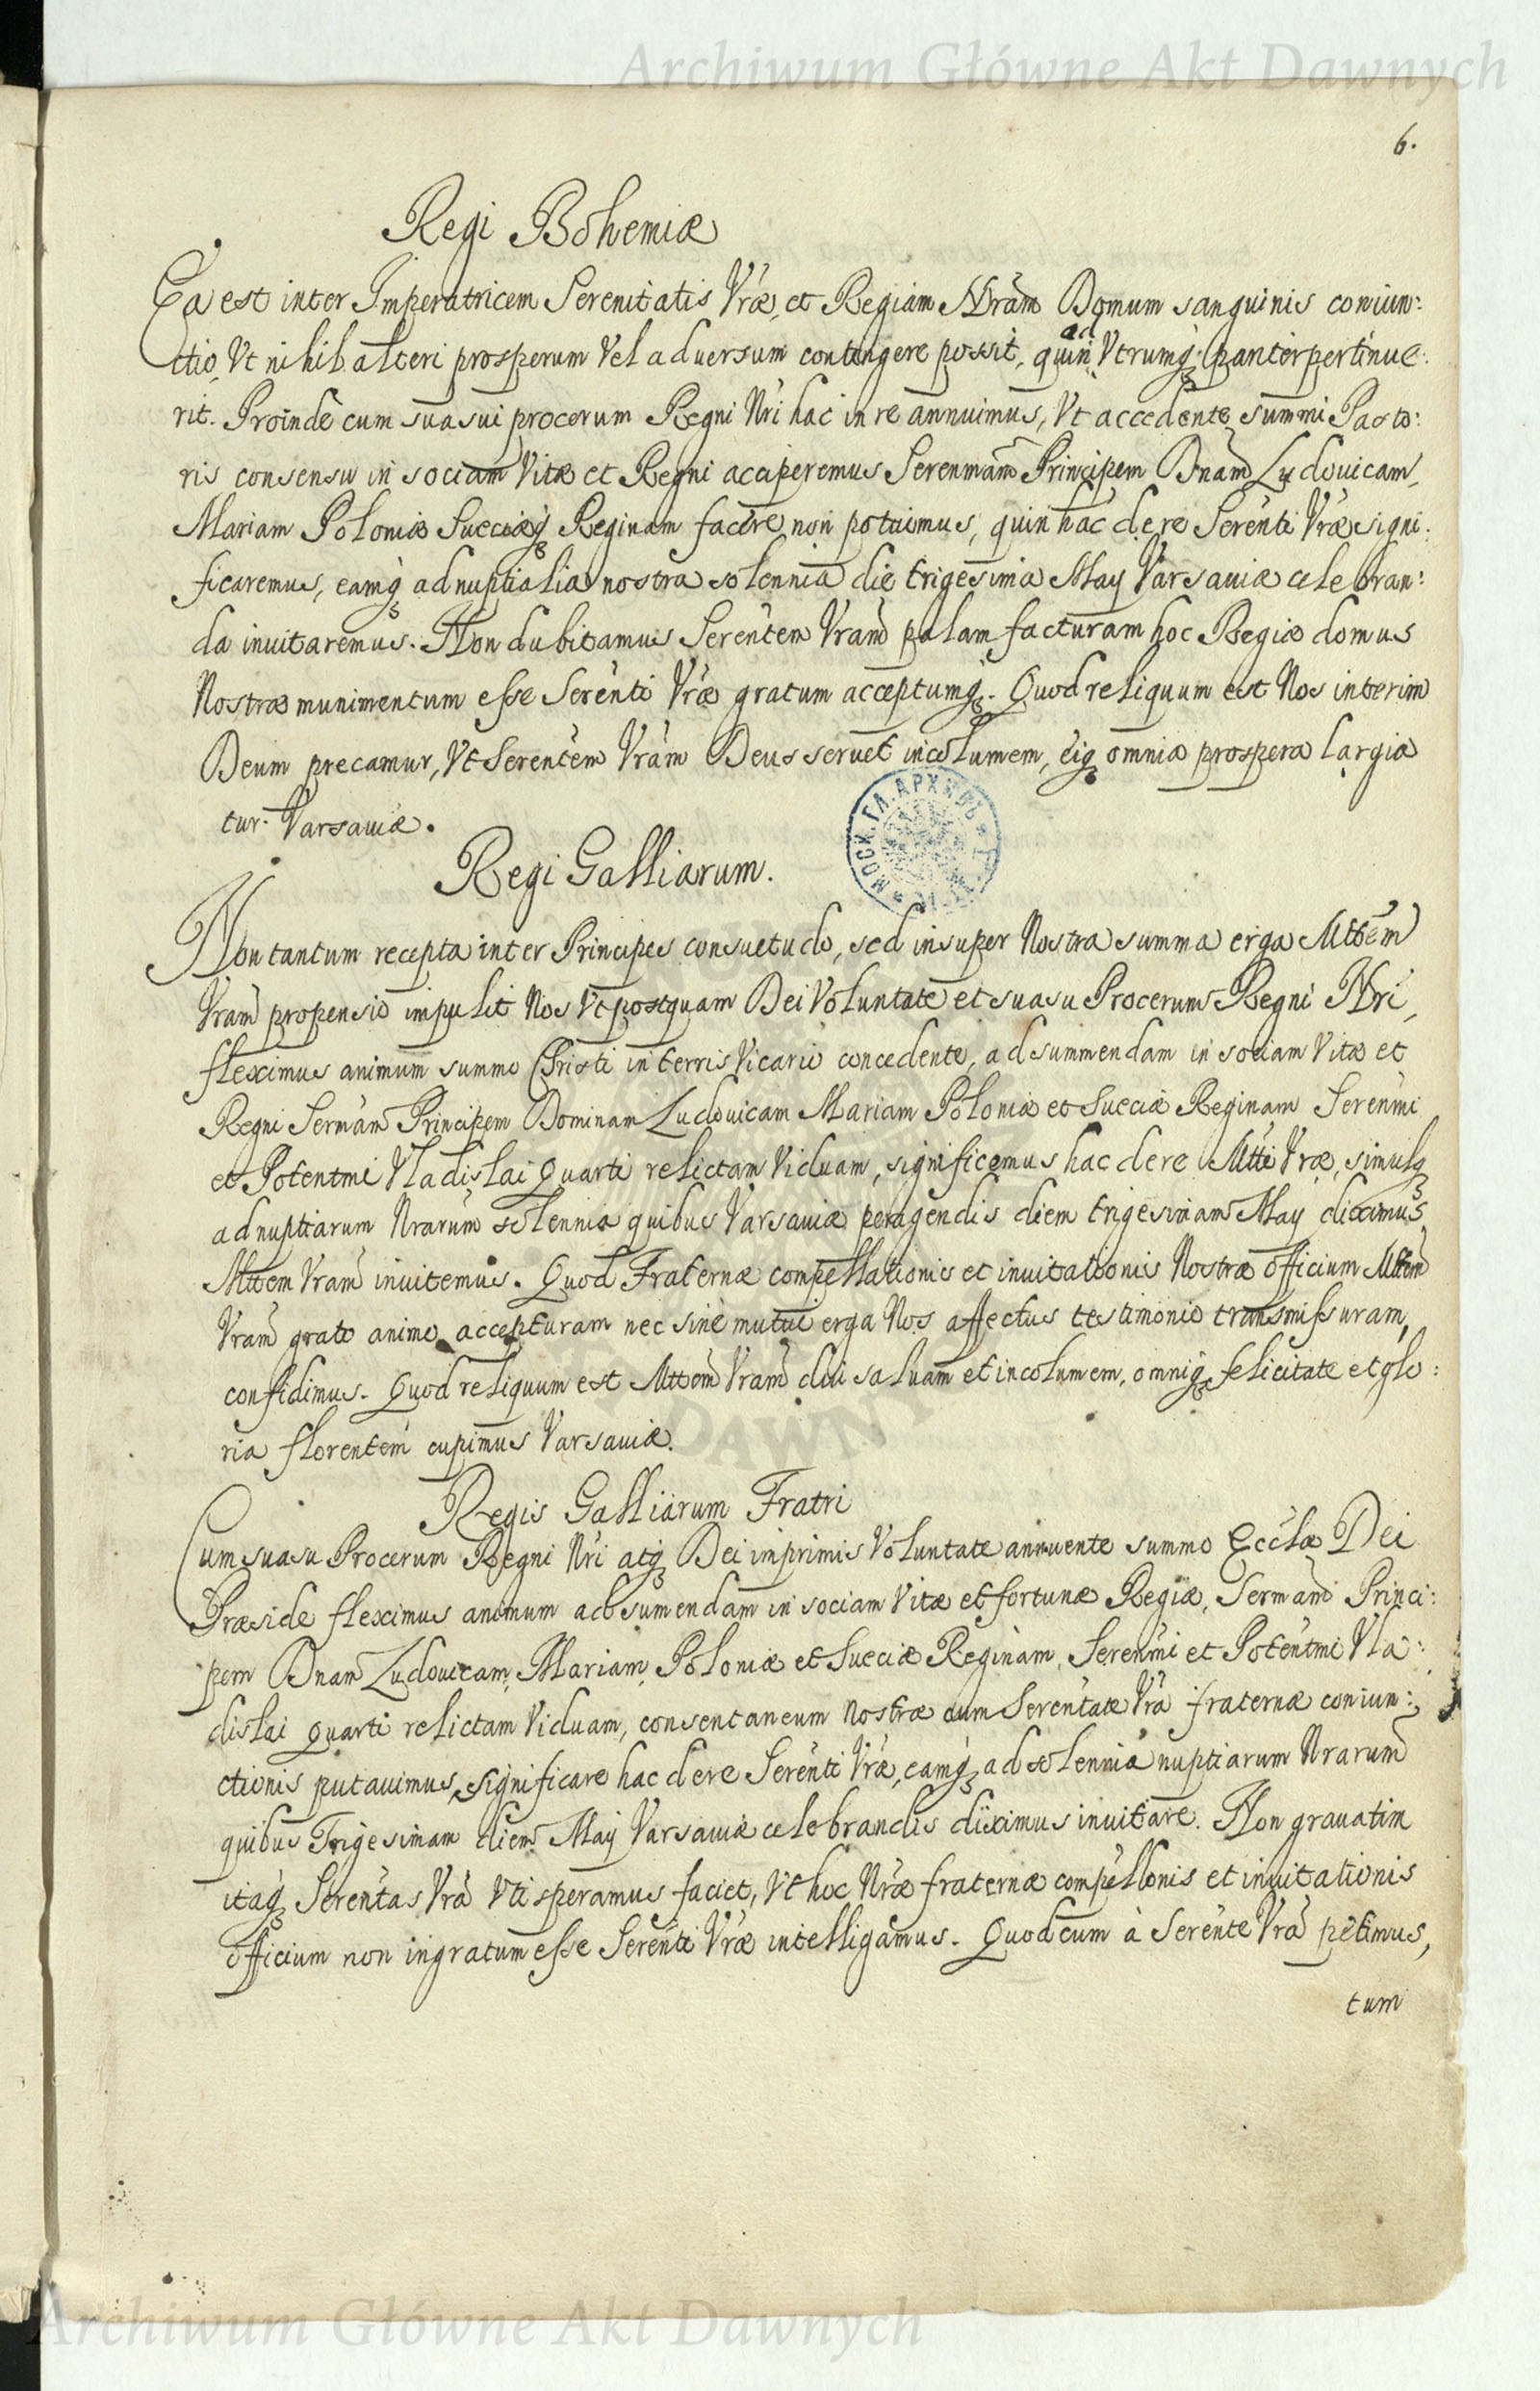 Archiwum Główne Akt Dawnych
6.
Regi Bohemiæ
Ea est inter Imperatricem Serenitatis Vræ, et Regiam Nram Domum sanguinis coniun:
ctio, Vt nihil alteri prosperum Vel aduersum contingere possit, quin ad Vtrumq; pariter pertinue:
rit. Proinde cum suasui procerum Regni Nri hac in re annuimus, Vt accedente summi Pasto:
ris consensu in sociam Vitæ et Regni acciperemus Serenmam Principem Dnam Ludouicam
Mariam Poloniæ Sueciæq; Reginam facere non potuimus, quin hac de re Serenti Vræ signi:
ficaremus, eamq; ad nuptialia nostra solennia die trigesima May Varsauiæ celebran:
da inuitaremus. Non dubitamus Serentem Vram palam facturam hoc Regiæ domus
Nostræ munimentum esse Serenti Vræ gratum acceptumq;. Quod reliquum est Nos interim
Deum precamur, Vt Serentem Vram Deus seruet incolumem, eiq; omnia prospera largia
tur. Varsauiæ.
МОСК. ГЛ. АРХИВЪ
Regi Galliarum.
Non tantum recepta inter Principes consuetudo, sed insuper Nostra summa erga Mttem
Vram propensio impulit Nos Vt postquam Dei Voluntate et suasu Procerum Regni Nri,
fleximus animum summo Christi in terris Vicario concedente, ad summendam in sociam Vitæ et
Regni Sermam Principem Dominam Ludouicam Mariam Poloniæ et Sueciæ Reginam Serenmi
et Potentmi Vladislai Quarti relictam Viduam, significemus hac de re Mtti Vræ, simulq;
ad nuptiarum Nrarum solennia quibus Varsauiæ peragendis diem trigesimam May diximus
Mttem Vram inuitemus. Quod Fraternæ compellationis et inuitationis Nostræ officium Mttem
Vram grato animo accepturam nec sine mutui erga Nos affectus testimonio transmissuram,
confidimus. Quod reliquum est Mttem Vram diu saluam et incolumem, omniq; felicitate et glo:
ria florentem cupimus Varsauiæ.
Regis Galliarum Fratri
Cum suasu Procerum Regni Nri atq; Dei imprimis Voluntate annuente summo Ecclæ Dei
Præside fleximus animum ad sumendam in sociam Vitæ et fortunæ Regiæ, Sermam Princi:
pem Dnam Ludouicam Mariam Poloniæ et Sueciæ Reginam, Serenmi et Potentmi Vla:
dislai Quarti relictam Viduam, consentaneum nostræ cum Serentate Vra fraternæ coniun:
ctionis putauimus, significare hac de re Serenti Vræ, eamq; ad solennia nuptiarum Nrarum
quibus Trigesimam diem May Varsauiæ celebrandis diximus inuitare. Non grauatim
itaq; Serentas Vra Vti speramus faciet, Vt hoc Nræ fraternæ compellonis et inuitationis
officium non ingratum esse Serenti Vræ intelligamus. Quod cum à Serente Vra petimus,
tum
Archiwum Główne Akt Dawnych